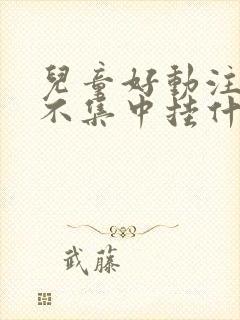 兒童好動注
不集中挂什
武藤